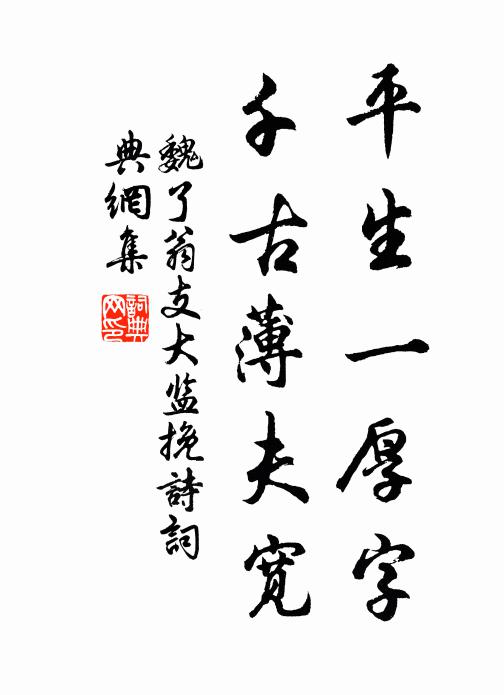 平生一厚字
千古薄夫寬
魏了翁支大监挽詩詞
典網集
詞典
网印